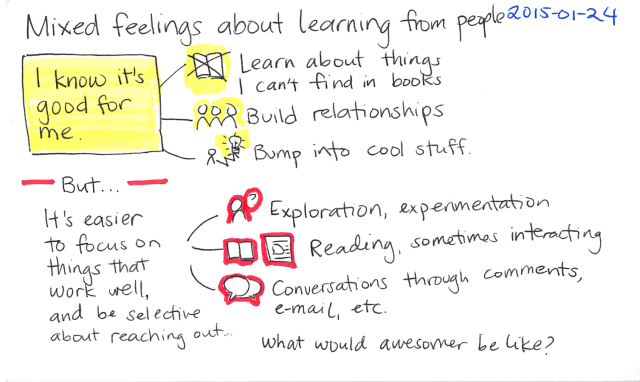 Mixed feelings about learning from people 2015-01-24
I know it's
good for
me.
Learn about things
I can't find in books
Build relationships
Bump into cool stuff.
But...
It's easier
to focus on
things that
work well,
and be selective
about reaching out...
? Exploration, experimentation
Reading, sometimes interacting
Conversations through comments,
e-mail, etc.
What would awesomer be like?